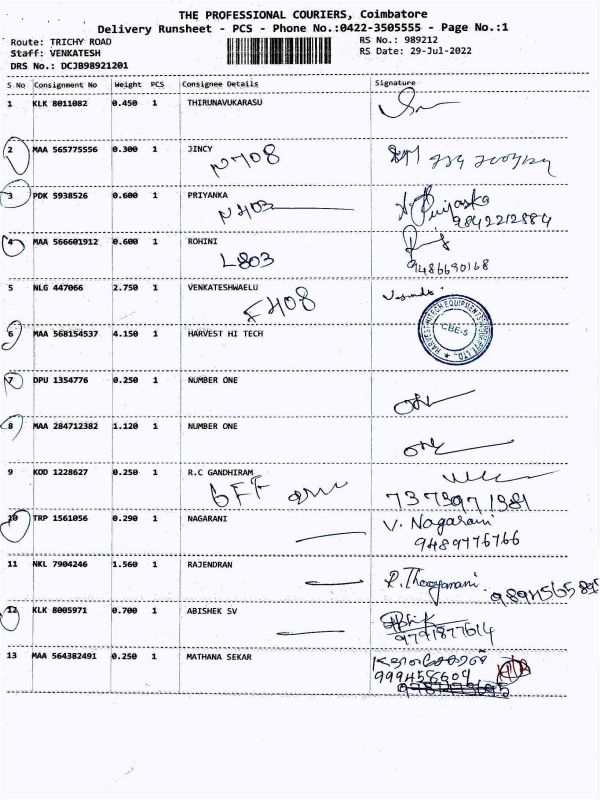 THE PROFESSIONAL COURIERS, Coimbatore
Delivery Runsheet - PCS - Phone No.:0422-3505555 - Page No.:1
Route: TRICHY ROAD RS No.: 989212
Staff: VENKATESH RS Date: 29-Jul-2022
DRS No.: DCJB98921201
S No Consignment No Weight PCS Consignee Details Signature
1 KLK 8011082 0.450 1 THIRUNAVUKARASU
2 MAA 565775556 0.300 1 JINCY
N708
3 PDK 5938526 0.600 1 PRIYANKA
N403 Priyanka
9842212884
4 MAA 566601912 0.600 1 ROHINI
L803 9486690168
5 NLG 447066 2.750 1 VENKATESHWAELU
F408
6 MAA 568154537 4.150 1 HARVEST HI TECH
CBE-5
7 DPU 1354776 0.250 1 NUMBER ONE
8 MAA 284712382 1.120 1 NUMBER ONE
9 KOD 1228627 0.250 1 R.C GANDHIRAM
GFF 7373971381
10 TRP 1561056 0.290 1 NAGARANI V. Nagarani
9489776766
11 NKL 7904246 1.560 1 RAJENDRAN
12 KLK 8005971 0.700 1 ABISHEK SV Abhik
9791877614
13 MAA 564382491 0.250 1 MATHANA SEKAR
999458604